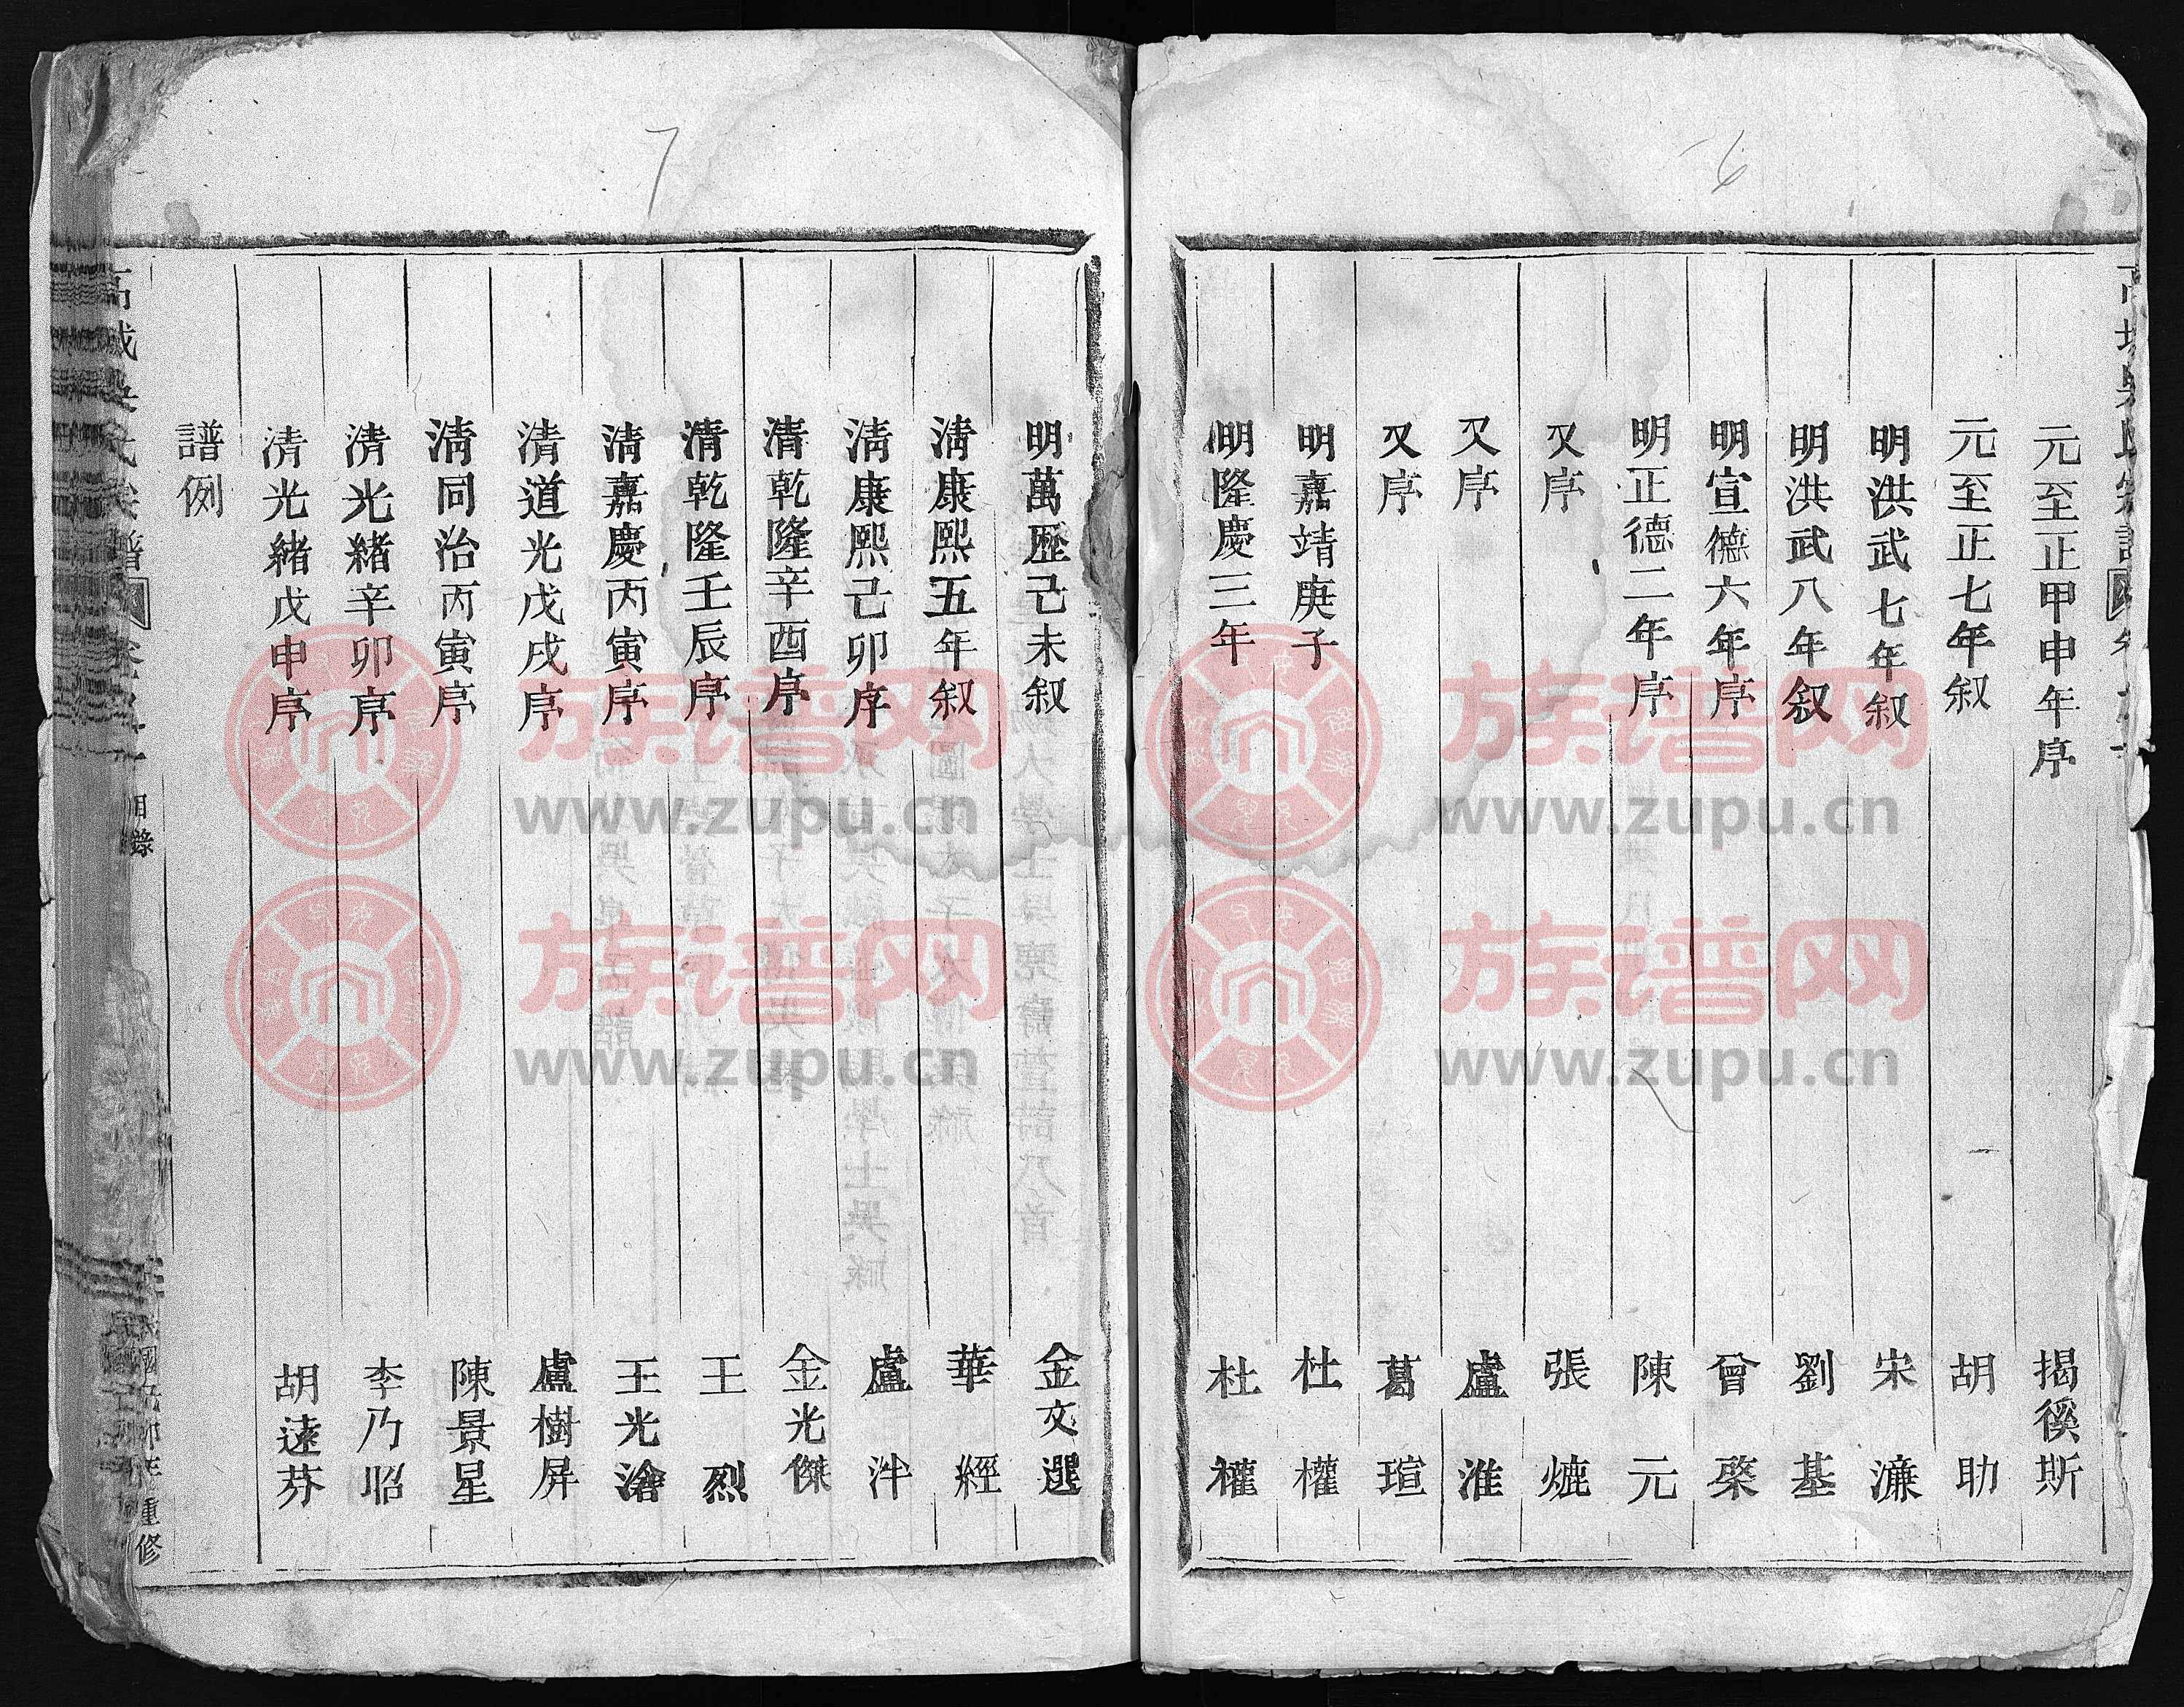 6
元至正甲申年序 揭徯斯
元至正七年叙 胡助
明洪武七年叙 宋濂
明洪武八年叙 劉基
明宣德六年序 曾棨
明正德二年序 陳元
又序 張熝
又序 盧淮
又序 葛瑄
明嘉靖庚子 杜權
明隆慶三年 杜權
7
明萬歷己未叙 金文選
淸康熙五年叙 華經
淸康熙己卯序 盧泮
清乾隆辛酉序 金光傑
清乾隆壬辰序 王烈
清嘉慶丙寅序 王光滄
清道光戊戌序 盧樹屏
淸同治丙寅序 陳景星
清光緒辛卯序 李乃昭
清光緒戊申序 胡遠芬
譜例
重修
族谱网
www.zupu.cn
族谱网
www.zupu.cn
族谱网
www.zupu.cn
族谱网
www.zupu.cn